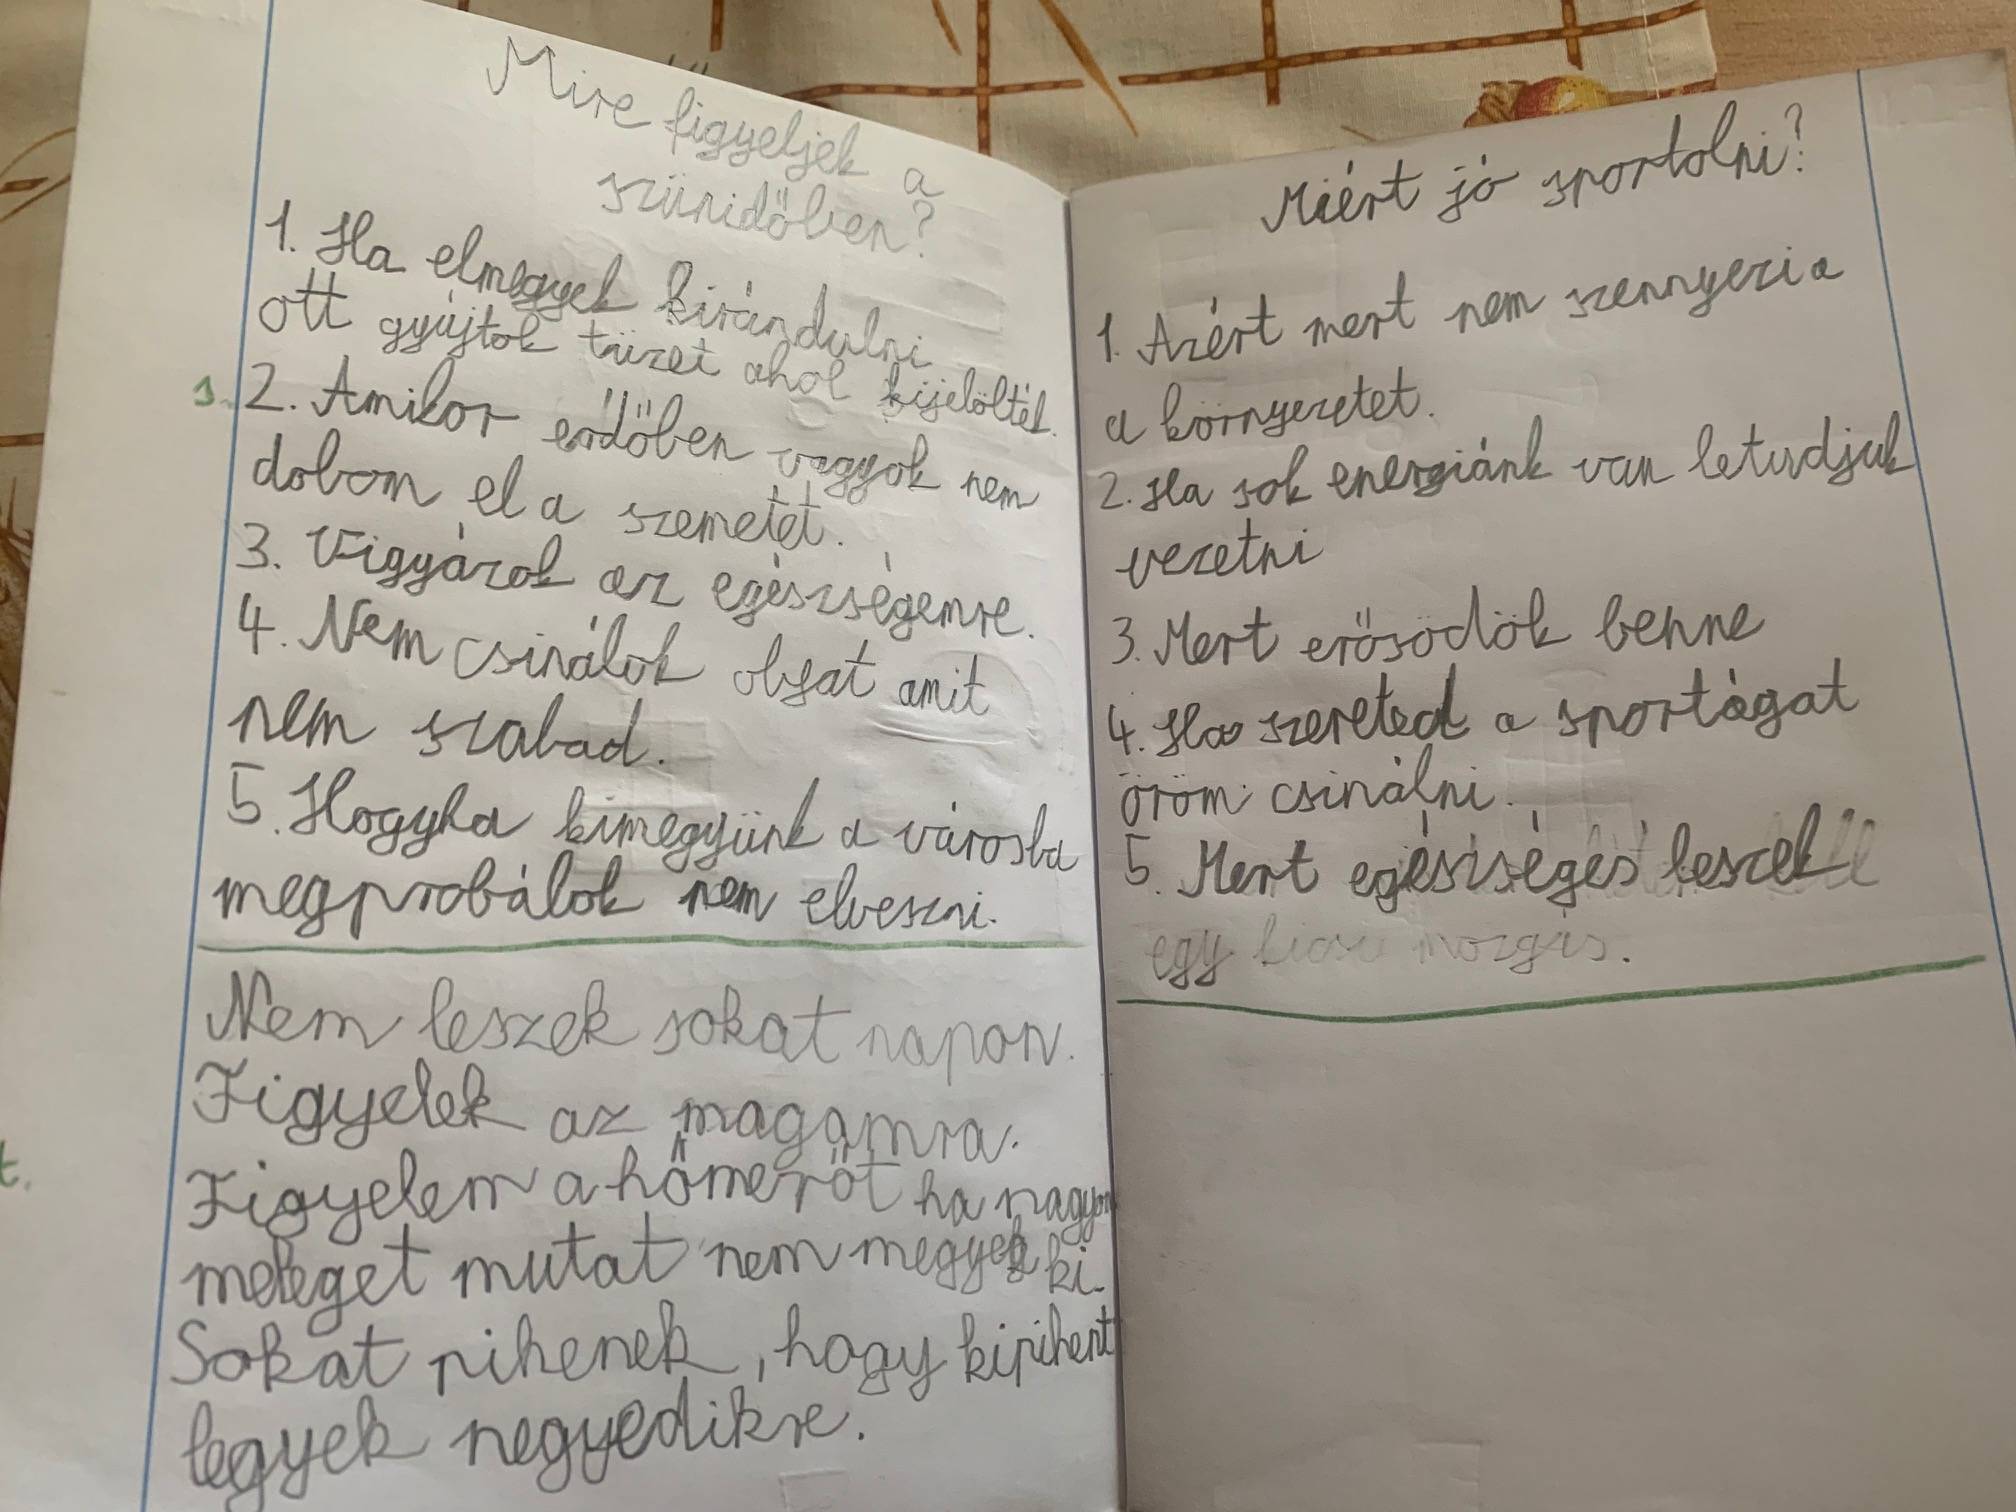 Mire figyeljek a
szünidőben?
1. Ha elmegyek kirándulni
ott gyújtok tüzet ahol kijelölték.
2. Amikor erdőben vagyok nem
dobom el a szemetet.
3. Vigyázok az egészségemre.
4. Nem csinálok olyat amit
nem szabad.
5. Hogyha kimegyünk a városba
megpróbálok nem elveszni.
Nem leszek sokat napon.
Figyelek az magamra.
Figyelem a hőmerőt ha nagyon
meleget mutat nem megyek ki.
Sokat pihenek, hogy kipihent
legyek negyedikre.
Miért jó sportolni?
1. Azért mert nem szennyezi a
a környezetet.
2. Ha sok energiánk van letudjuk
vezetni
3. Mert erősödök benne
4. Ha szereted a sportágat
öröm csinálni.
5. Mert egésiségés leszek
egy kicsi mozgás.